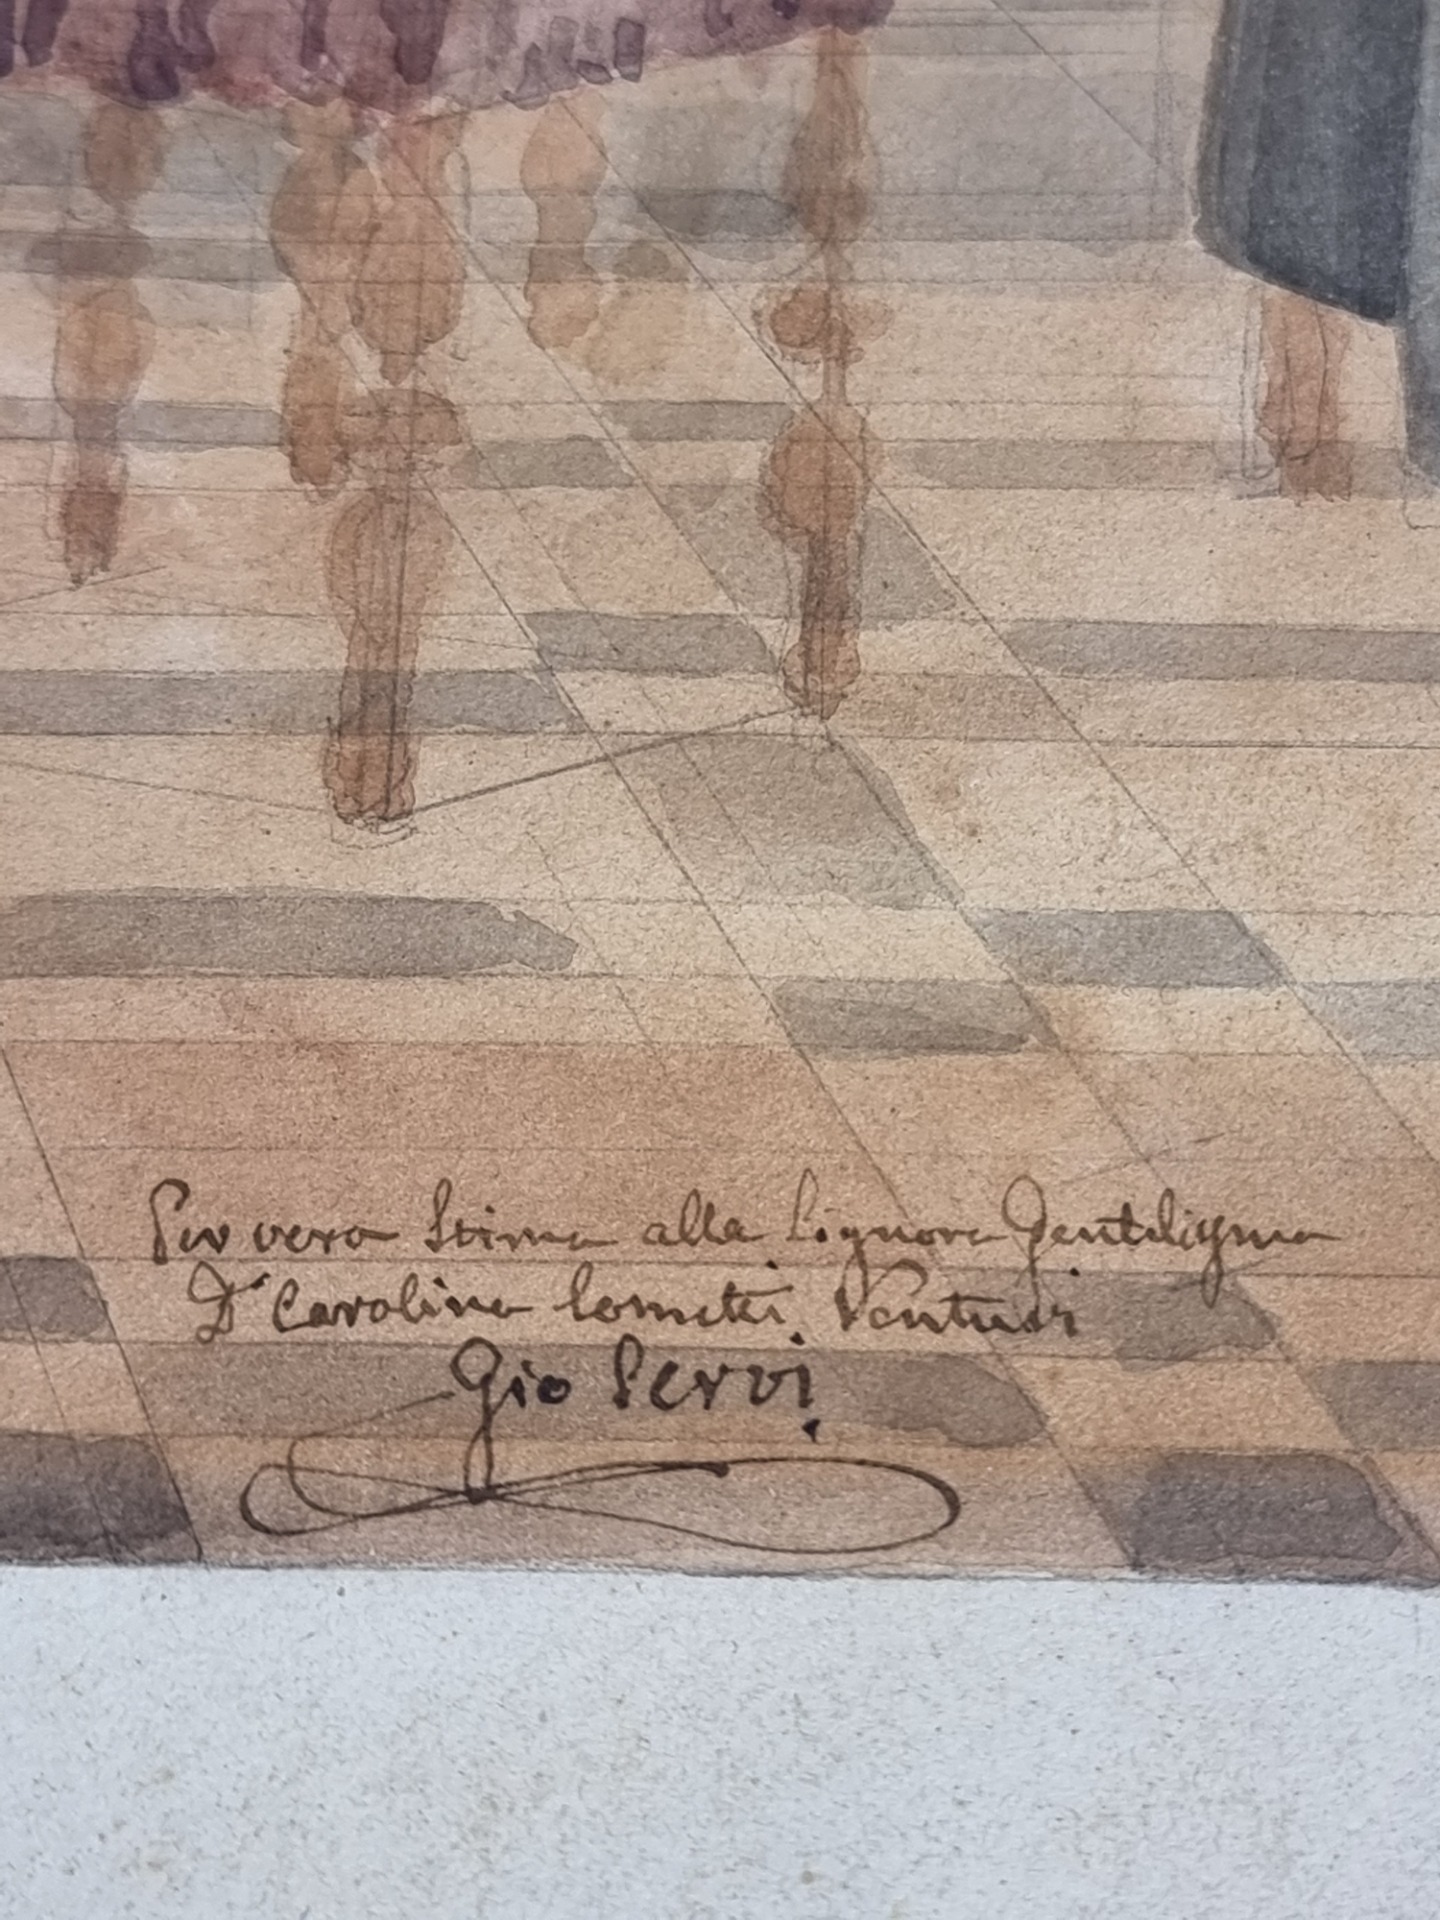 Per vera Stima alla Signora Gentiligma
Dª Carolina Cometti Venturi
Gio Servi